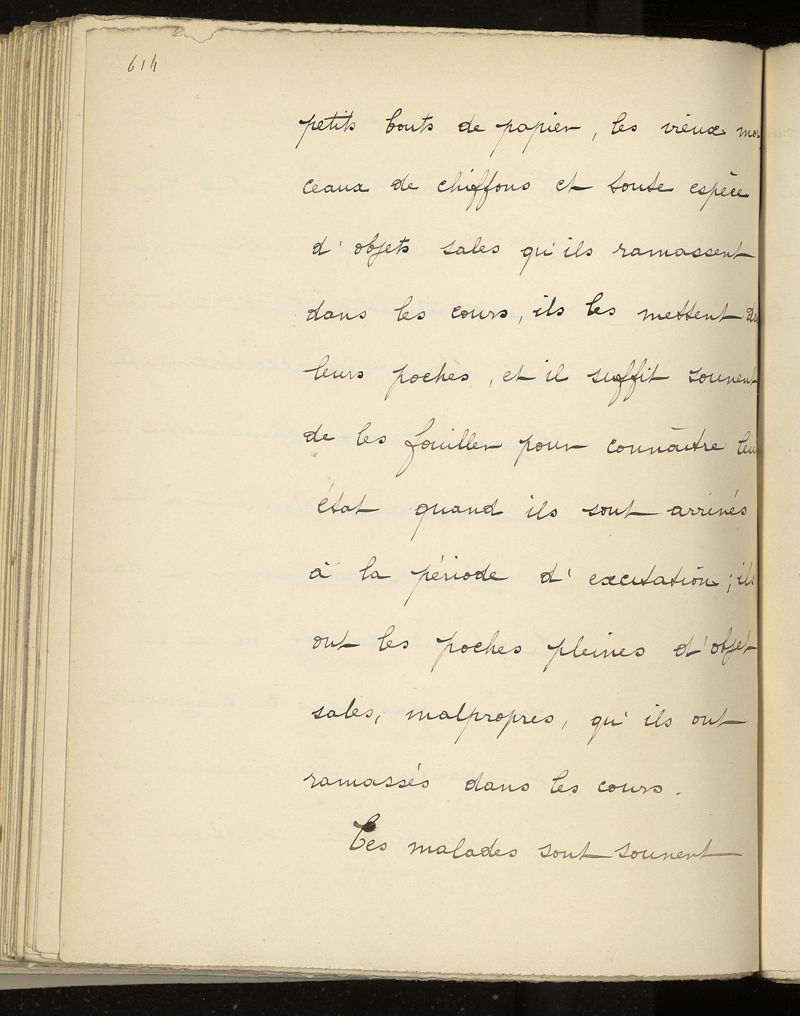 614
petits bouts de papier, les vieux mor
ceaux de chiffons et toute espèce
d'objets sales qu'ils ramassent
dans les cours, ils les mettent da
leurs poches, et il suffit souvent
de les fouiller pour connaître leu
état quand ils sont arrivés
à la période d'excitation ; ils
ont les poches pleines d'objet
sales, malpropres, qu'ils ont
ramassés dans les cours.
Ces malades sont souvent